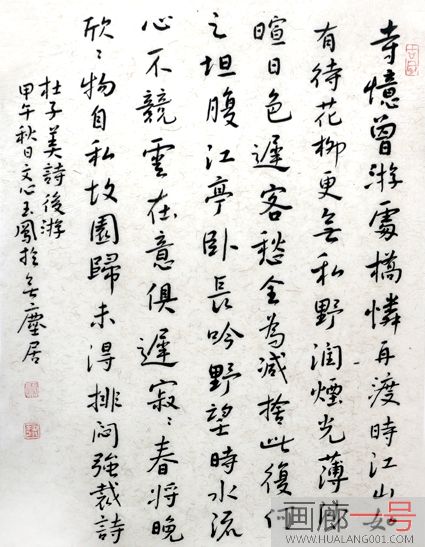 寺憶曾游處橋憐再渡時江山如
有待花柳更無私野潤煙光薄沙
暄日色遲客愁全為減捨此復何
之坦腹江亭卧長吟野望時水流
心不競雲在意俱遲寂〻春將晚
欣〻物自私故園歸未得排悶強裁詩
杜子美詩後游
甲午秋日文心玉鳳於無塵居
画廊一号
WWW.HUALANG001.COM